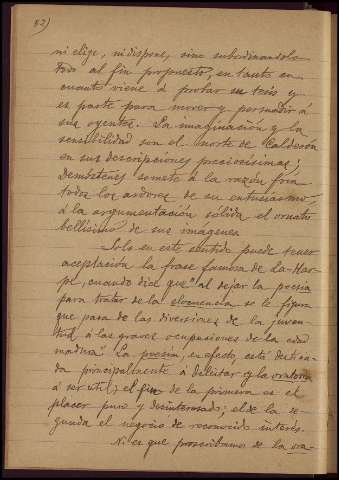 82)
ni elige, ni dispone, sino subordinándolo
todo al fin propuesto, en tanto en
cuanto viene a probar su tesis y
es parte para mover y persuadir á
sus oyentes. La imaginación y la
sensibilidad son el norte de Calderón
en sus descripciones preciosísimas;
Demóstenes somete á la razón fría
todos los ardores de su entusiasmo,
á la argumentación sólida el ornato
bellísimo de sus imágenes.
Solo en este sentido puede tener
aceptación la frase famosa de La-Har-
pe, cuando dice que "al dejar la poesía
para tratar de la elocuencia se le figura
que pasa de las diversiones de la juven-
tud á las graves ocupaciones de la edad
madura". La poesía, en efecto, está dedica-
da principalmente á deleitar y la oratoria
á ser útil; el fin de la primera es el
placer puro y desinteresado; el de la se-
gunda el negocio de reconocido interés.
Ni es que proscribamos de la ora-